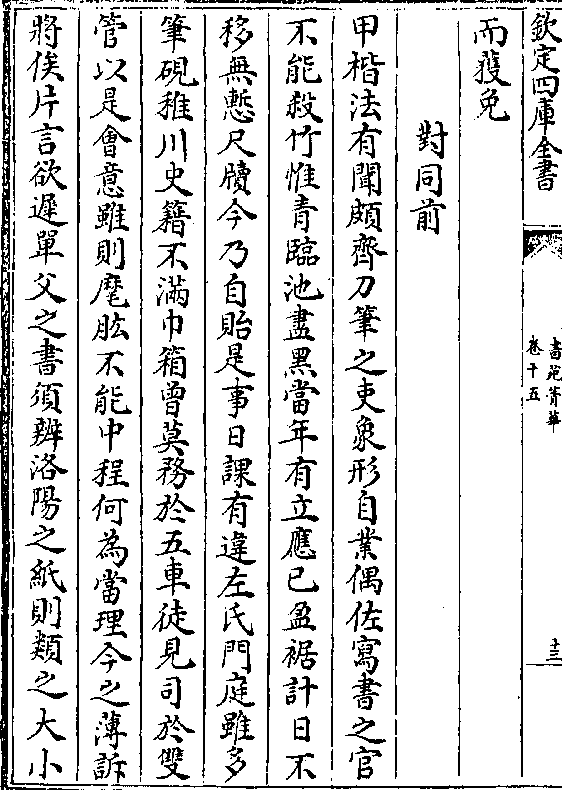 欽定四庫全書
書苑菁華
卷十五
十三
而獲免
對同前
甲楷法有聞頗齊刀筆之吏象形自業偶佐寫書之官
不能殺竹惟青臨池盡黑當年有立應已盈裾計日不
移無慙尺牘今乃自貽是事日課有違左氏門庭雖多
筆硯稚川史籍不滿巾箱曾莫務於五車徒見司於雙
管以是會意雖則麾肱不能中程何為當理今之薄訴
將俟片言欲遲單父之書須辨洛陽之紙則類之大小